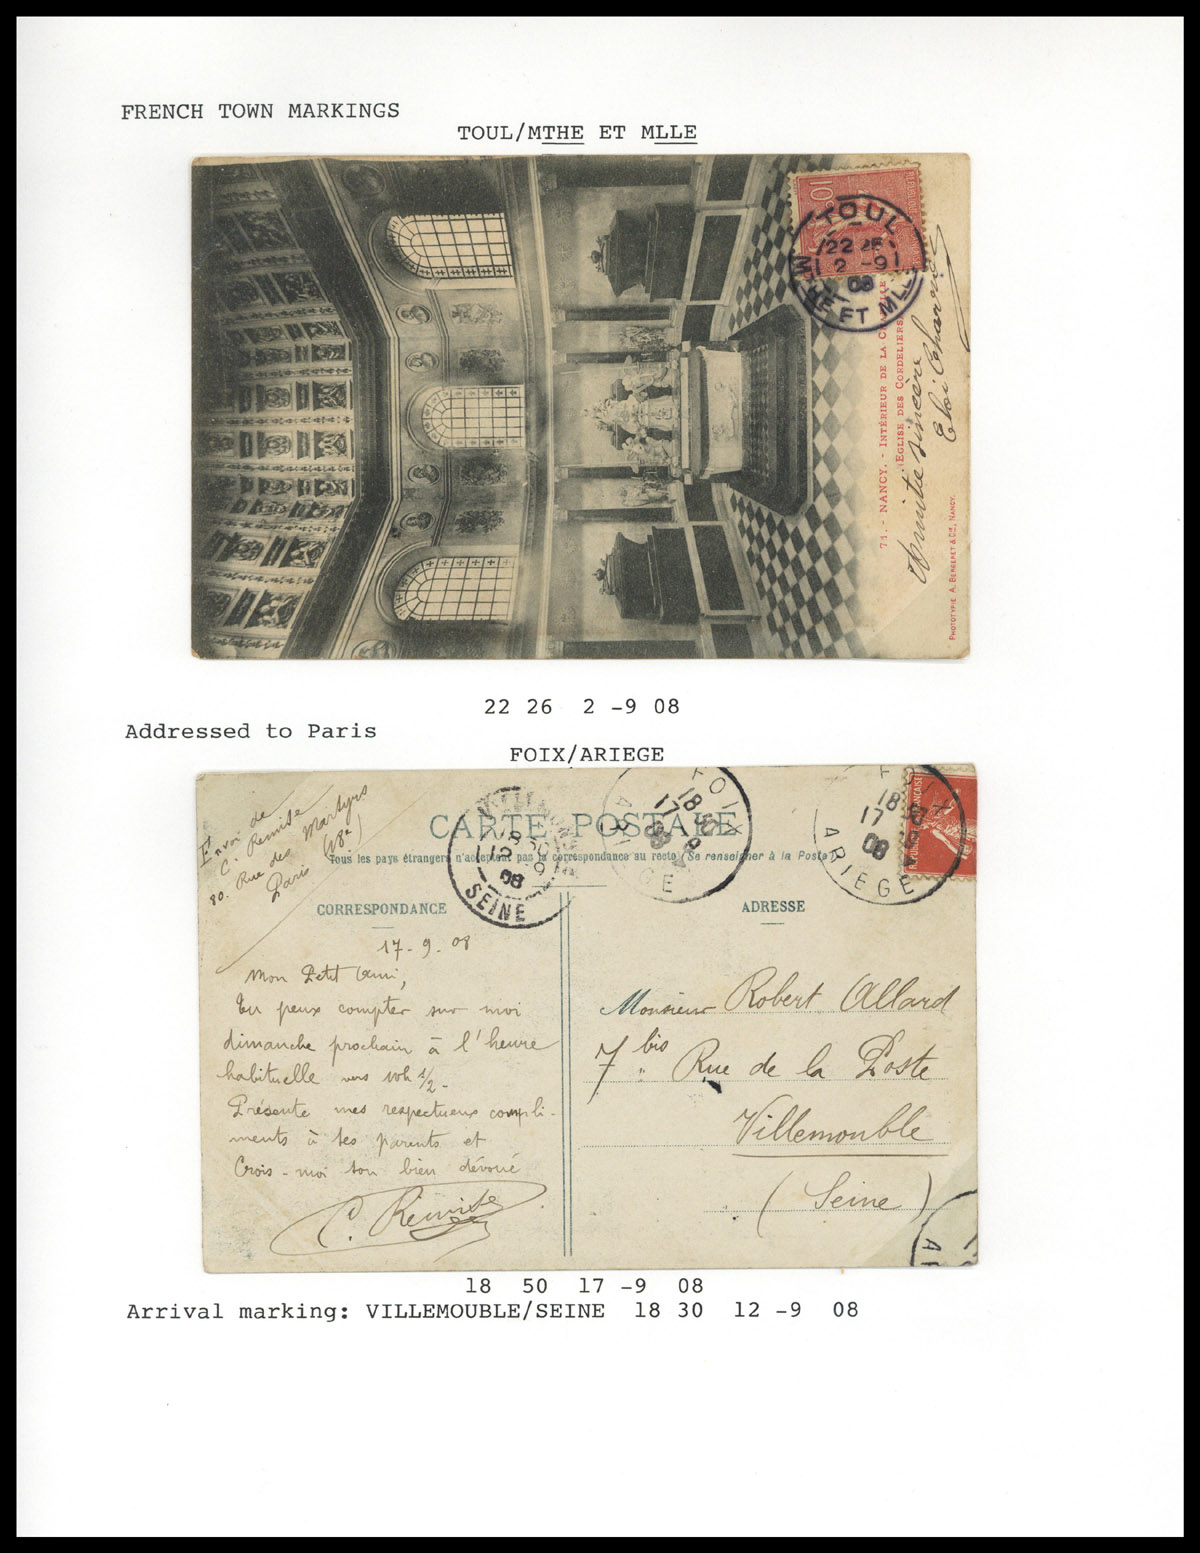 FRENCH TOWN MARKINGS
TOUL/MTHE ET MLLE
10c
TOUL
22
2 -9
08
MTHE ET MLLE
71. - NANCY. - INTÉRIEUR DE LA
(EGLISE DES CORDELIERS
Amitié sincère
PHOTOTYPIE A. BERGERET & Cie, NANCY.
22 26 2 -9 08
Addressed to Paris
FOIX/ARIEGE
Envoi de
C. Remise
80. Rue des Martyrs
Paris (18e)
CARTE POSTALE
Tous les pays étrangers n'acceptent pas la correspondance au recto (Se renseigner à la Poste)
SEINE
08
FOIX
18 50
17 -9
08
ARIEGE
FOIX
18 50
17 -9
08
ARIEGE
CORRESPONDANCE
ADRESSE
17-9-08
Mon Petit Ami,
Tu peux compter sur moi
dimanche prochain à l'heure
habituelle vers 10h 1/2-
Présente mes respectueux compli-
ments à tes parents et
Crois-moi ton bien dévoué
C. Remise
Monsieur Robert Allard
7 bis Rue de la Poste
Villemomble
(Seine)
18 50 17 -9 08
Arrival marking: VILLEMOUBLE/SEINE 18 30 12 -9 08